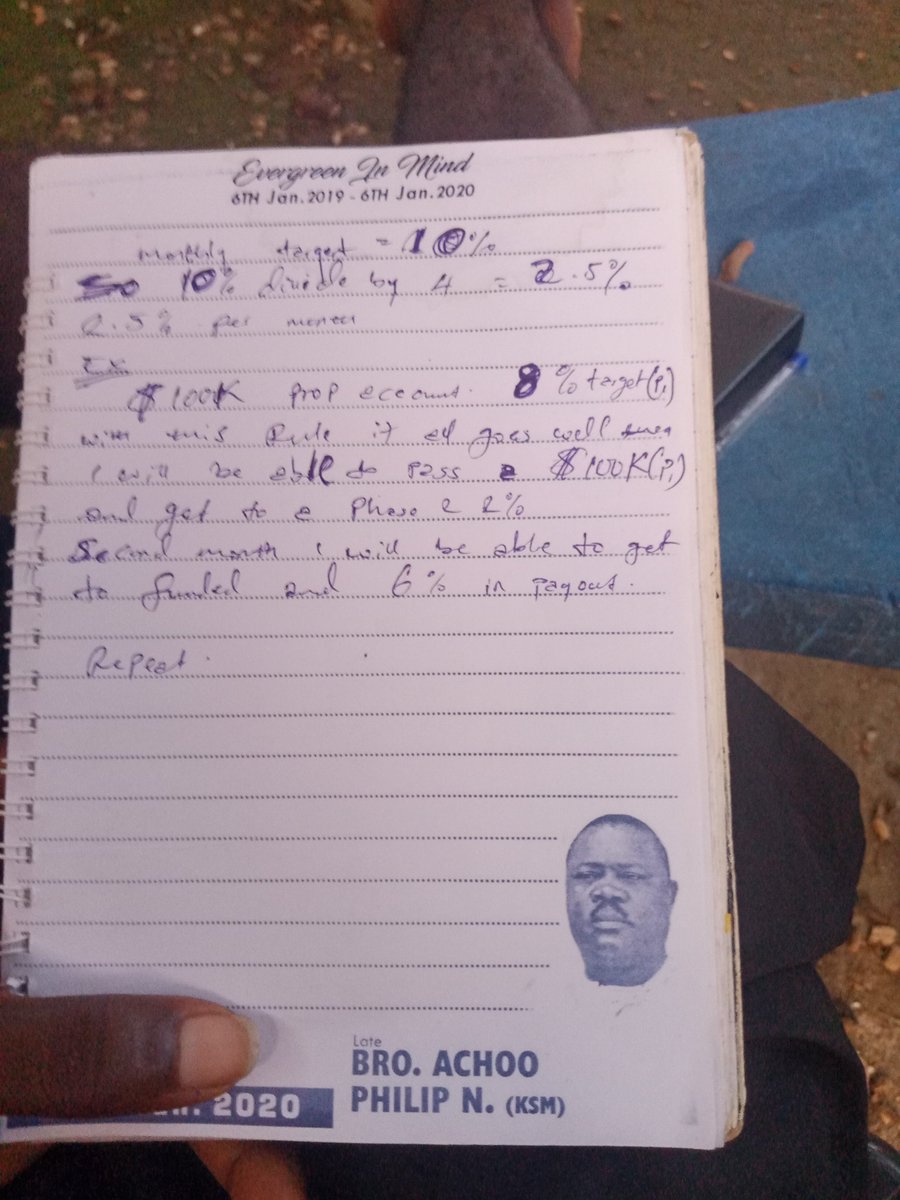 Evergreen In Mind
6TH Jan. 2019 - 6TH Jan. 2020
Monthly target = 10%
So 10% divide by 4 = 2.5%
2.5% per month
Ex
$100K prop account. 8% target(P1)
with this Rule if all goes well
I will be able to pass a $100K(P1)
and get to a Phase 2 2%
Second month I will be able to get
to funded and 6% in payout.
Repeat.
Late
BRO. ACHOO
PHILIP N. (KSM)
2020